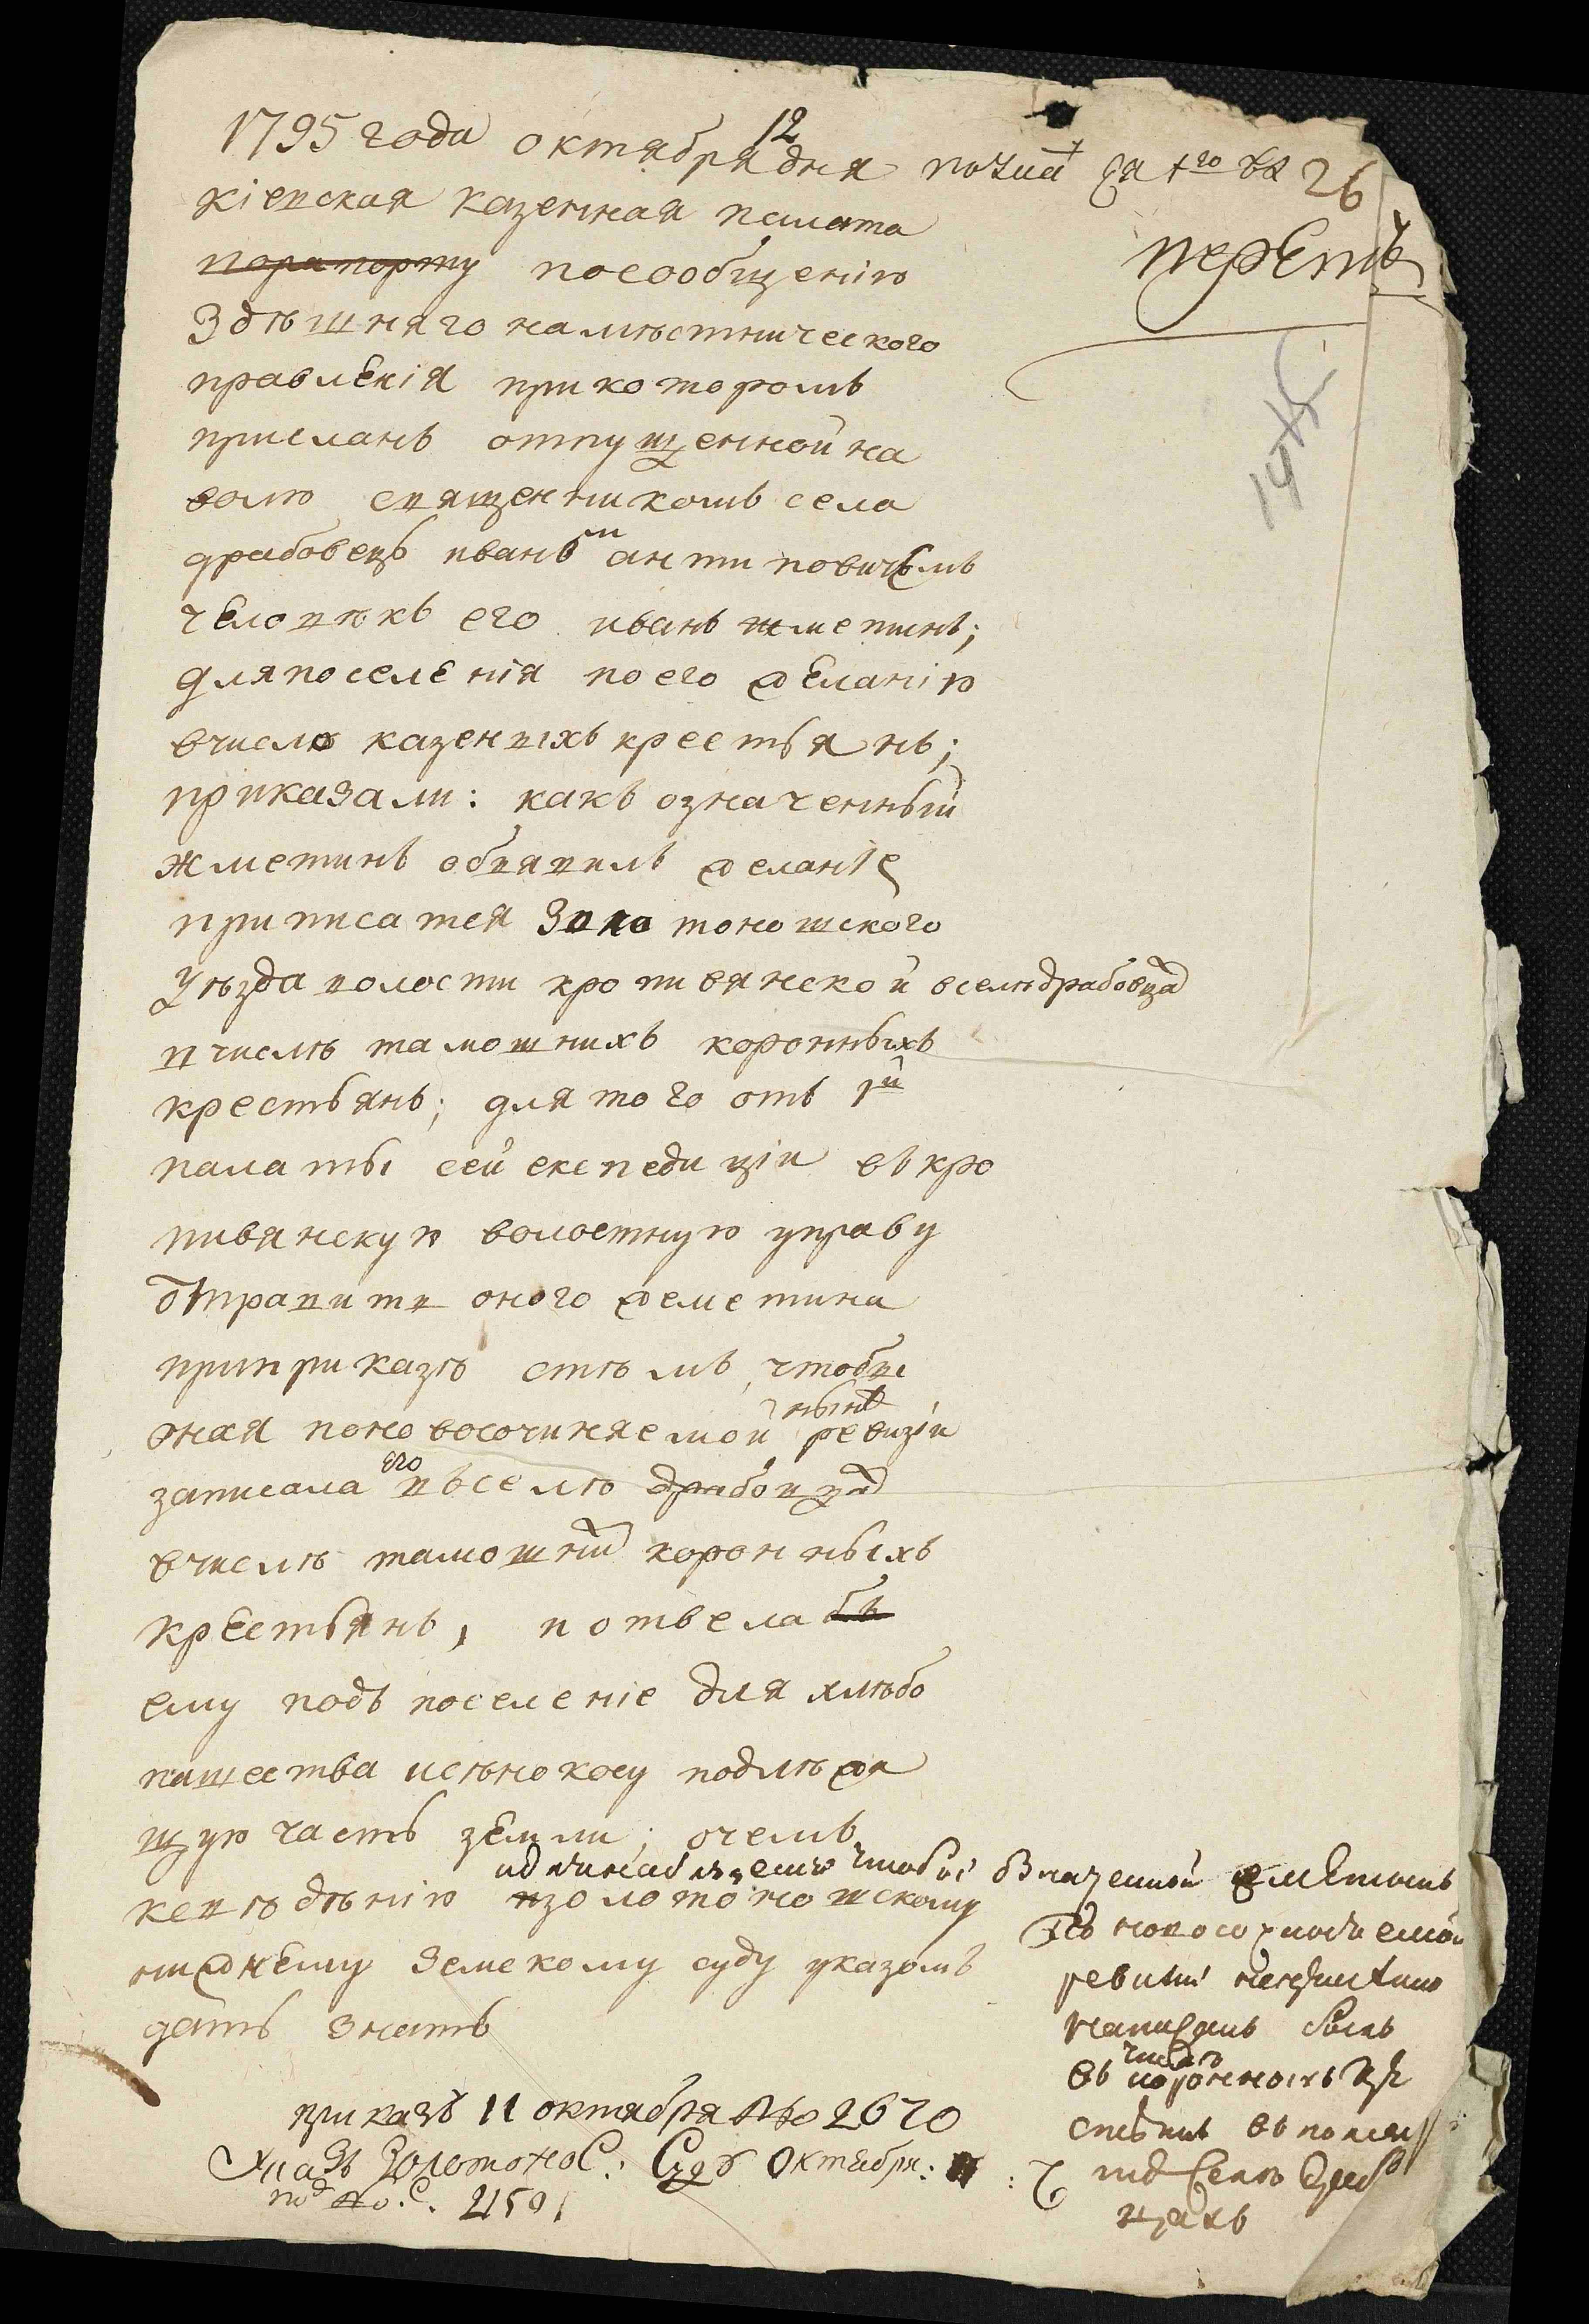 1795 года октября 12 дня
26
кіевская казенная палата
порапорту посообщенію
Здѣшняго намѣстнического
правленія прикоторомъ
присланъ отпущенной на
волю священникомъ села
драбовецъ иваномъ антиповичемъ
человѣкъ его иванъ жметинъ;
дляпоселенія поего желанію
вчисло казенныхъ крестьянъ;
приказали: какъ означенный
жметинъ обявилъ желаніе
приписатся Золотоношского
уѣзда волости кропивянской вселѣ драбовцах
вчислѣ тамошнихъ коронныхъ
крестьянъ; для того отъ 1й
палаты сей експедиціи въ кро
пивянскую волостную управу
отправить оного жеметина
приприказѣ стѣмъ, чтобы
оная поновосочиняемой нынѣ ревизіи
записала его въселѣ драбовцах
вчислѣ тамошних коронныхъ
крестьянъ, и отвела бъ
ему подъ поселеніе для хлѣбо
пашества исѣнокосу подлѣжа
щую часть земли; очемъ
квѣдѣнію изолотоношскому
нижнему Земскому суду указомъ
дать знать
чтобы
по новосочиняемой
ревизіи
написанъ былъ
въ числѣ коронныхъ кре
стьянъ
приказъ 11 октября № 2670
Указъ Золотонос: Суду Октября:
под №. 2150